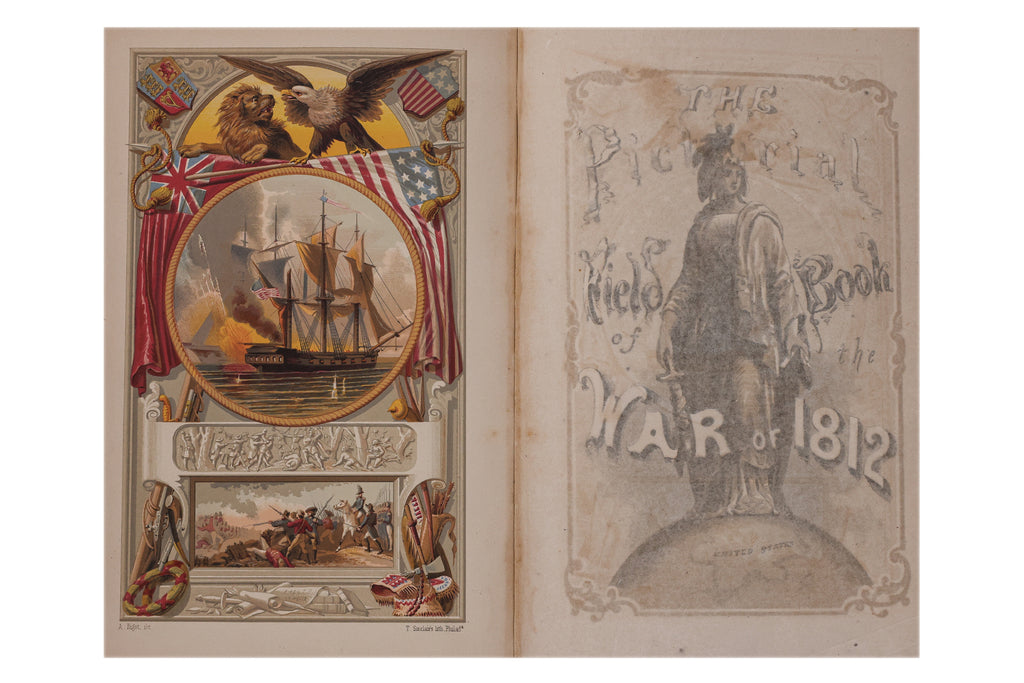 T. Sinclair's lith, Philada
THE
Pictorial
Field Book
of the
WAR OF 1812
UNITED STATES